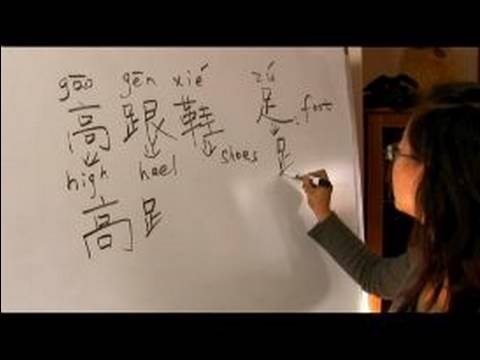 gāo gēn xié zú
高跟鞋 足 foot
high heel shoes ⻊
高⻊